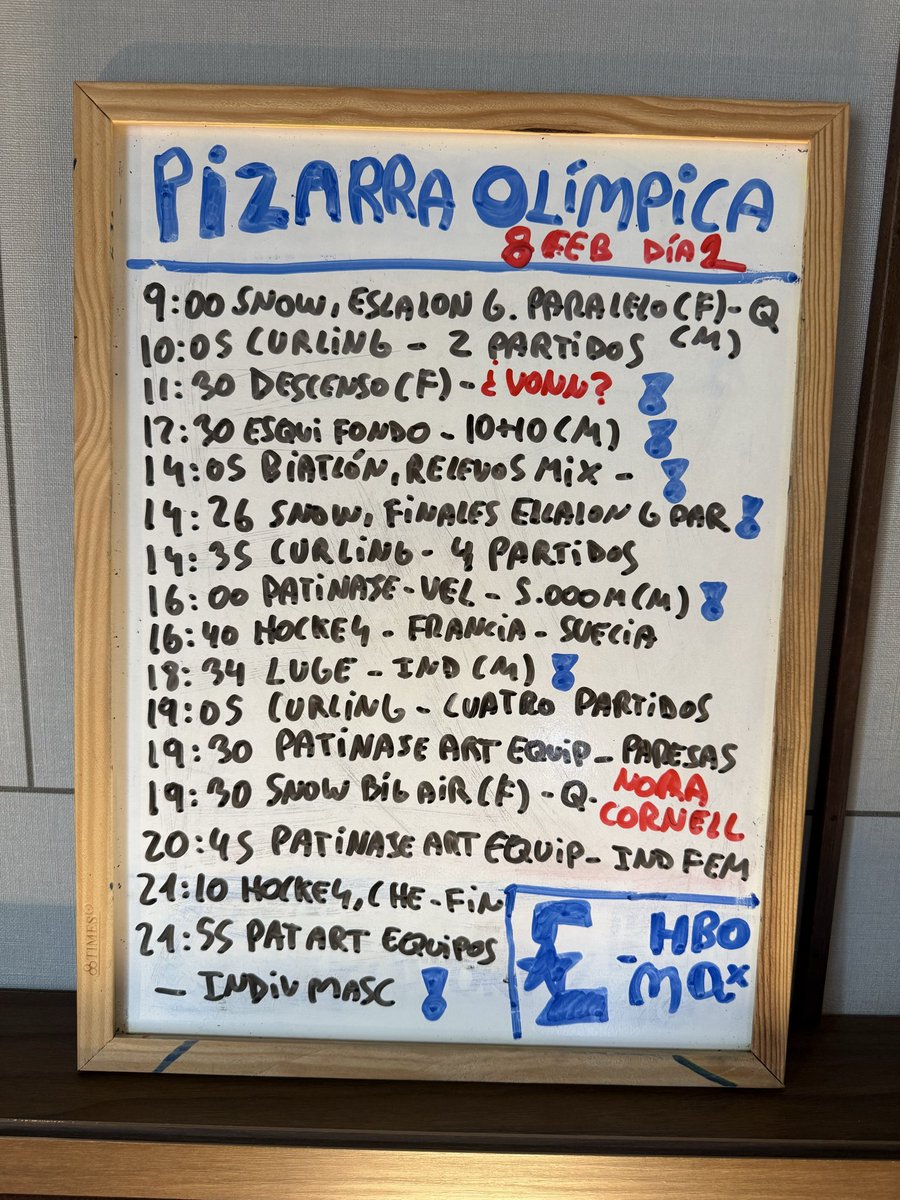 PIZARRA OLÍMPICA
8 FEB DÍA 2
9:00 SNOW, ESLALON G. PARALELO (F)- Q
10:05 CURLING - 2 PARTIDOS (M)
11:30 DESCENSO (F) - ¿VONN?
12:30 ESQUI FONDO - 10+10 (M)
14:05 BIATLÓN, RELEVOS MIX -
14:26 SNOW, FINALES ESLALON G PAR
14:35 CURLING - 4 PARTIDOS
16:00 PATINAJE-VEL - 5.000M (M)
16:40 HOCKEY - FRANCIA - SUECIA
18:34 LUGE - IND (M)
19:05 CURLING - CUATRO PARTIDOS
19:30 PATINAJE ART EQUIP - PAREJAS
19:30 SNOW BIG AIR (F) - Q. NORA CORNELL
20:45 PATINAJE ART EQUIP - IND FEM
21:10 HOCKEY, CHE - FIN
21:55 PAT ART EQUIPOS
- INDIV MASC
E
HBO
max
TIMES